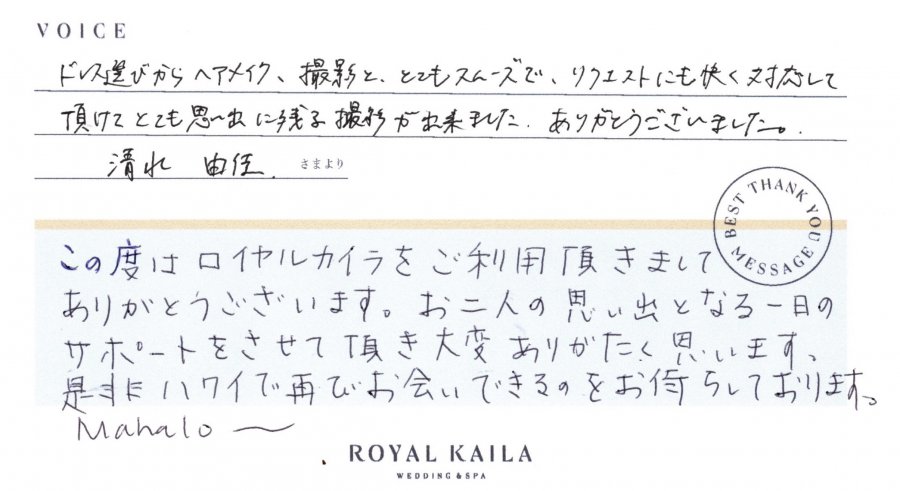 VOICE
ドレス選びからヘアメイク、撮影と、とてもスムーズで、リクエストにも快く対応して
頂けてとても思い出に残る撮影が出来ました。ありがとうございました。
清水 由佳 さまより
BEST THANK YOU MESSAGE
この度はロイヤルカイラをご利用頂きまして
ありがとうございます。お二人の思い出となる一日の
サポートをさせて頂き大変ありがたく思います、
是非ハワイで再びお会いできるのをお待ちしております。
Mahalo ~
ROYAL KAILA
WEDDING & SPA